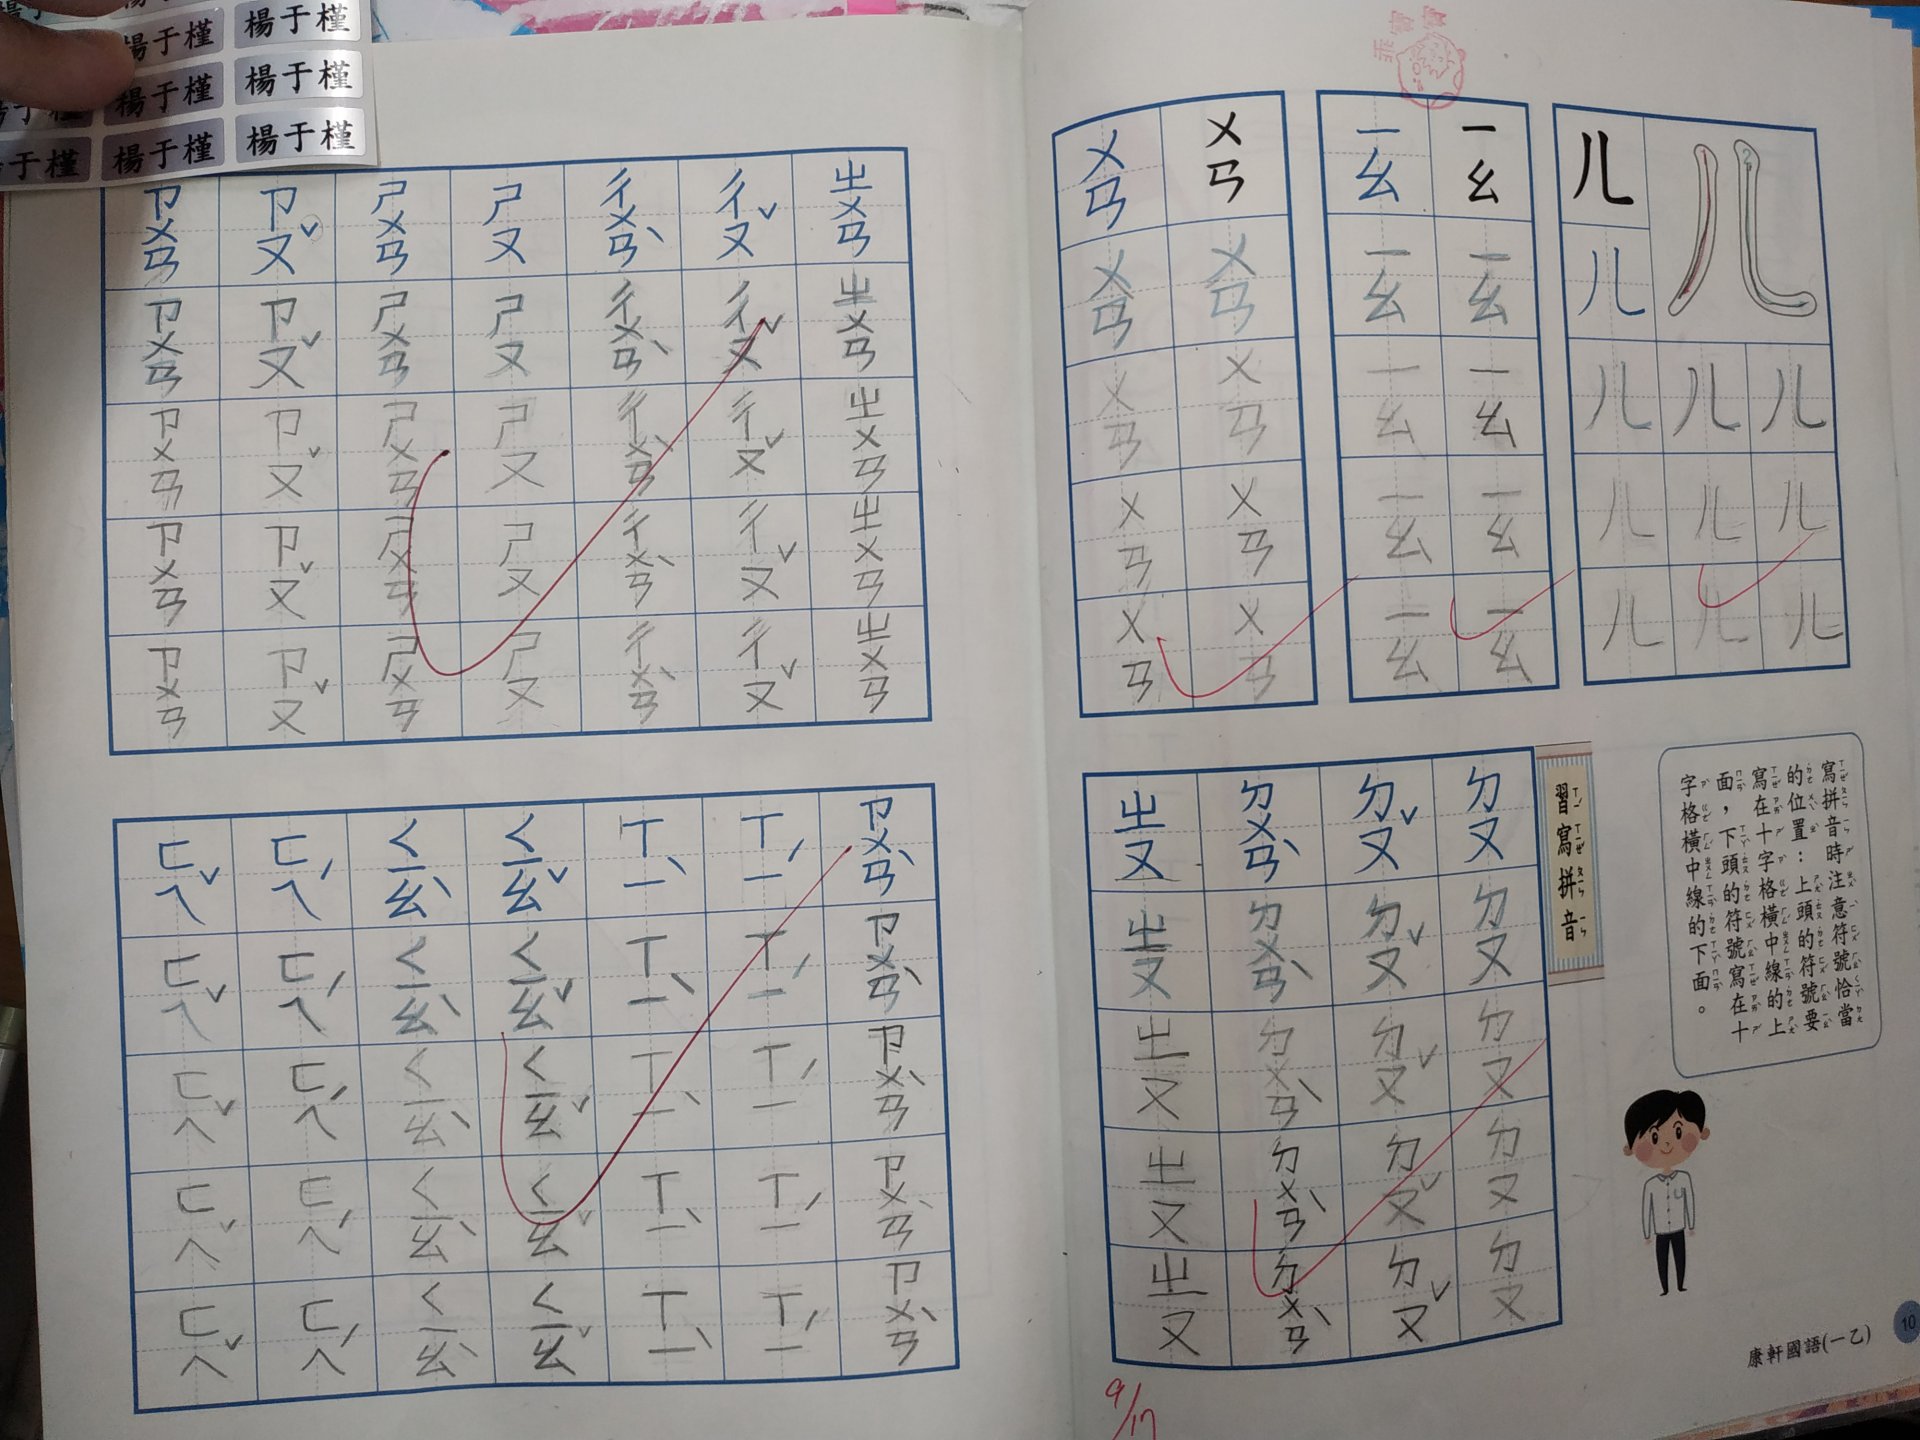 楊于槿 楊于槿
楊于槿 楊于槿
楊于槿 楊于槿
乖寶寶
ㄦ 1 2
ㄦ ㄦ
ㄦ ㄦ ㄦ
ㄦ ㄦ ㄦ
ㄦ ㄦ ㄦ
ㄧㄠ ㄧㄠ ㄧㄠ ㄧㄠ ㄧㄠ
ㄧㄠ ㄧㄠ ㄧㄠ ㄧㄠ ㄧㄠ
ㄨㄢ ㄨㄢ ㄨㄢ ㄨㄢ ㄨㄢ
ㄨㄢ ㄨㄢ ㄨㄢ ㄨㄢ ㄨㄢ
寫拼音時注意符號恰當
的位置：上頭的符號要
寫在十字格橫中線的上
面，下頭的符號寫在十
字格橫中線的下面。
習寫拼音
ㄉㄡ ㄉㄡ ㄉㄡ ㄉㄡ ㄉㄡ
ㄉㄡˇ ㄉㄡˇ ㄉㄡˇ ㄉㄡˇ ㄉㄡˇ
ㄉㄨㄢˋ ㄉㄨㄢˋ ㄉㄨㄢˋ ㄉㄨㄢˋ ㄉㄨㄢˋ
ㄓㄡ ㄓㄡ ㄓㄡ ㄓㄡ ㄓㄡ
康軒國語(一乙)
10
9/17
ㄓㄨㄢ ㄓㄨㄢ ㄓㄨㄢ ㄓㄨㄢ ㄓㄨㄢ
ㄔㄡˇ ㄔㄡˇ ㄔㄡˇ ㄔㄡˇ ㄔㄡˇ
ㄔㄨㄢˋ ㄔㄨㄢˋ ㄔㄨㄢˋ ㄔㄨㄢˋ ㄔㄨㄢˋ
ㄕㄡ ㄕㄡ ㄕㄡ ㄕㄡ ㄕㄡ
ㄕㄨㄢ ㄕㄨㄢ ㄕㄨㄢ ㄕㄨㄢ ㄕㄨㄢ
ㄗㄡˇ ㄗㄡˇ ㄗㄡˇ ㄗㄡˇ ㄗㄡˇ
ㄗㄨㄢ ㄗㄨㄢ ㄗㄨㄢ ㄗㄨㄢ ㄗㄨㄢ
ㄗㄨㄢˋ ㄗㄨㄢˋ ㄗㄨㄢˋ ㄗㄨㄢˋ ㄗㄨㄢˋ
ㄒㄧˊ ㄒㄧˊ ㄒㄧˊ ㄒㄧˊ ㄒㄧˊ
ㄒㄧˋ ㄒㄧˋ ㄒㄧˋ ㄒㄧˋ ㄒㄧˋ
ㄑㄧㄠˇ ㄑㄧㄠˇ ㄑㄧㄠˇ ㄑㄧㄠˇ ㄑㄧㄠˇ
ㄑㄧㄠˋ ㄑㄧㄠˋ ㄑㄧㄠˋ ㄑㄧㄠˋ ㄑㄧㄠˋ
ㄈㄟˊ ㄈㄟˊ ㄈㄟˊ ㄈㄟˊ ㄈㄟˊ
ㄈㄟˇ ㄈㄟˇ ㄈㄟˇ ㄈㄟˇ ㄈㄟˇ